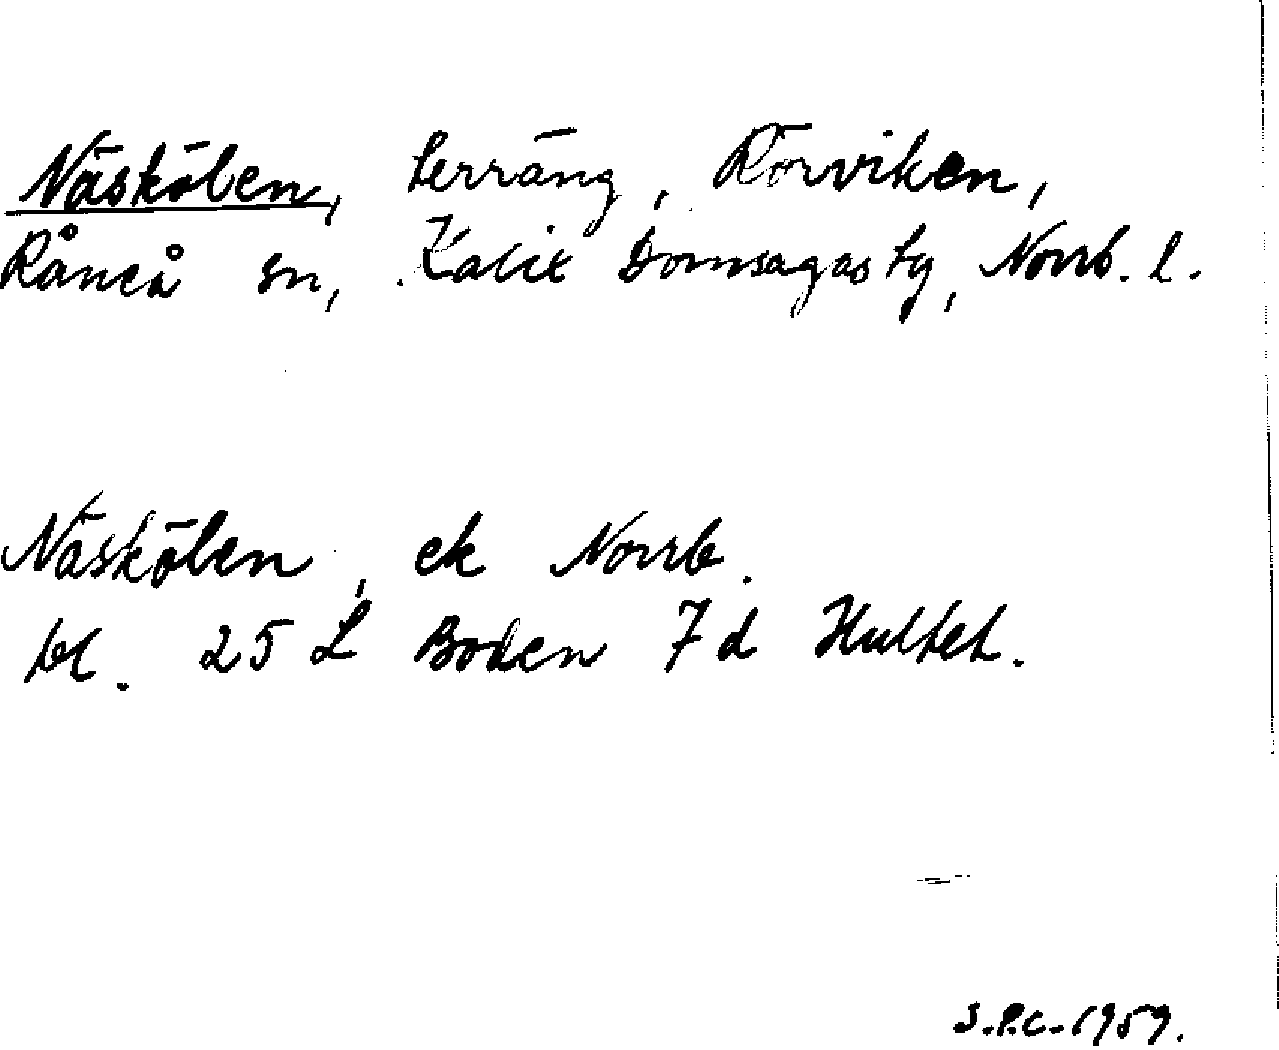 Näskölen, terräng, Rörviken,
Råneå sn, Kalix Domsagas tg, Norrb. l.
Näskölen, ek Norrb.
bl. 25 L Boden 7d Hultet.
S.P.C. 1959.